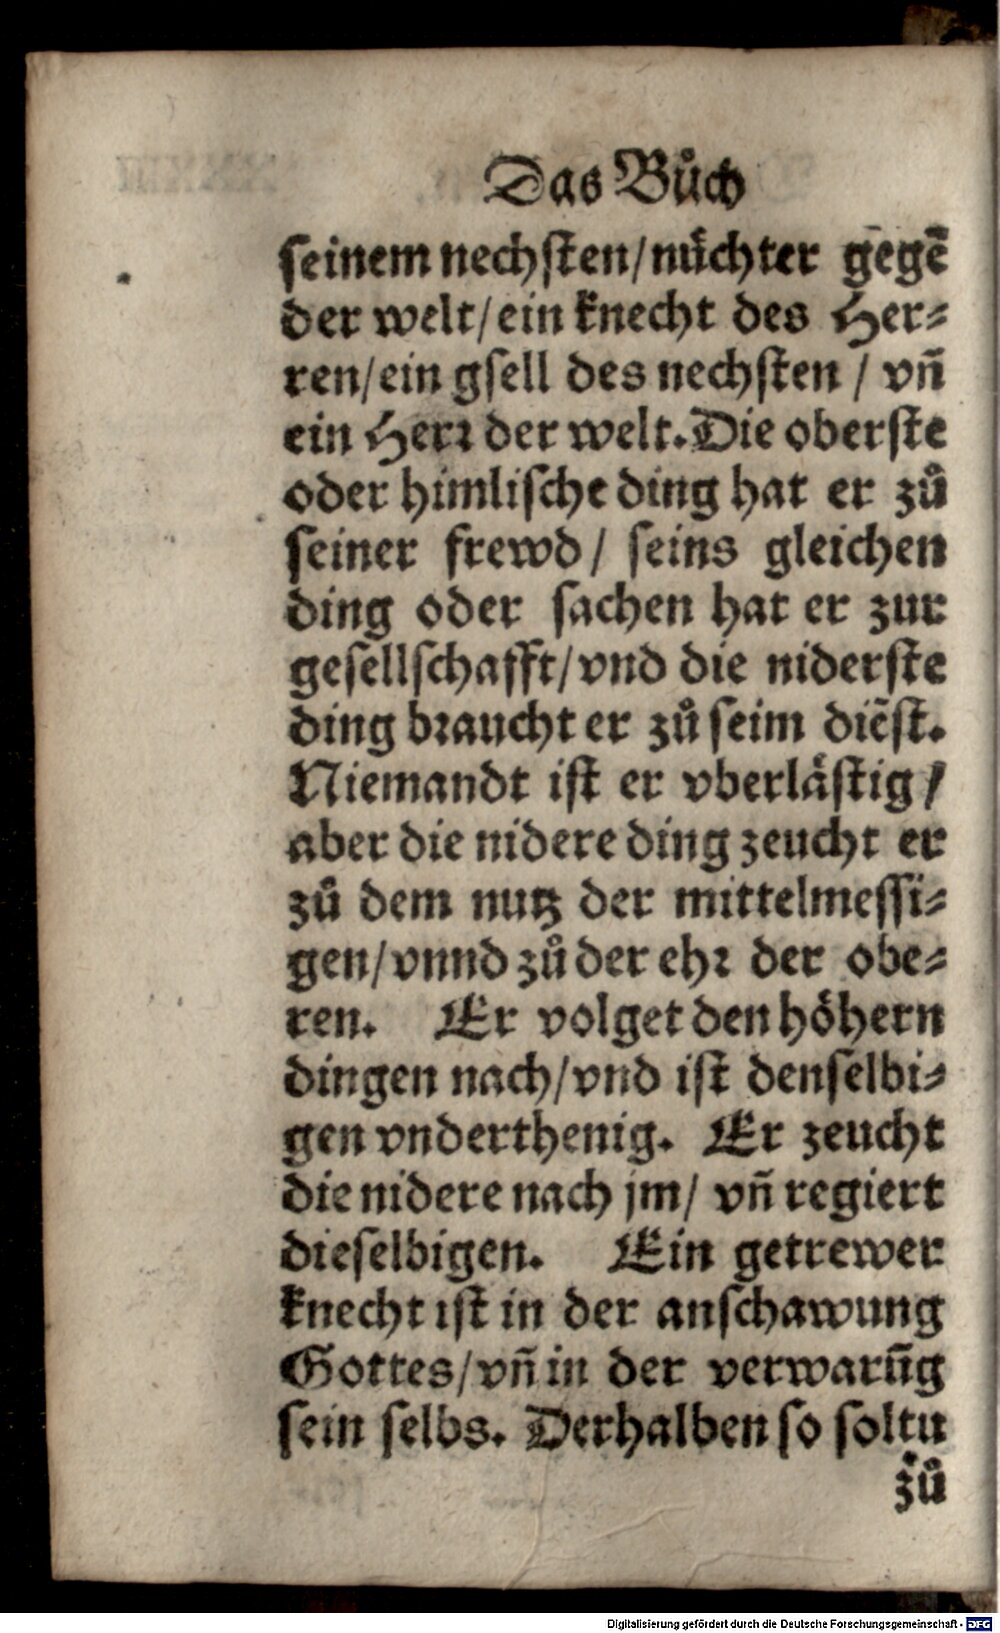 Das Bůch
ſeinem nechſten/nuͤchter gegē
der welt/ein knecht des Her⸗
ren/ein gſell des nechſten / vñ
ein Herꝛ der welt. Die oberſte
oder himliſche ding hat er zů
ſeiner frewd / ſeins gleichen
ding oder ſachen hat er zur
geſellſchafft/vnd die niderſte
ding bꝛaucht er zů ſeim diēſt.
Niemandt iſt er vberlaͤſtig /
aber die nidere ding zeucht er
zů dem nutz der mittelmeſſi⸗
gen/vnnd zů der ehꝛ der obe⸗
ren. Er volget den hoͤhern
dingen nach/vnd iſt denſelbi⸗
gen vnderthenig. Er zeucht
die nidere nach jm/ vñ regiert
dieſelbigen. Ein getrewer
knecht iſt in der anſchawung
Gottes/vñ in der verwarūg
ſein ſelbs. Derhalben ſo ſoltu
zů
Digitalisierung gefördert durch die Deutsche Forschungsgemeinschaft - DFG